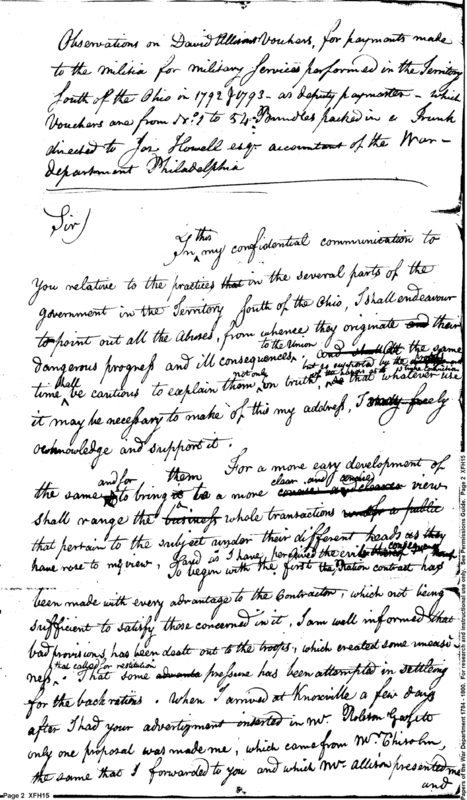 Observations on David Allison Vouchers, for payments made
to the Militia for military Services performed in the Territory
South of the Ohio in 1792 & 1793 - as deputy paymaster - which
Vouchers are from No. 1 to 54. Bundles packed in a Trunk
directed to Jos Howell esqr. accountant of the War-
department Philadelphia
Sir)
In this my confidential communication to
You relative to the practices that in the several parts of the
government in the Territory South of the Ohio, I shall endeavour
to point out all the Abuses, from whence they originate and their
to the Union
dangerous progress and ill consequences. and shall At the same
time shall be cautious to explain them not only on truth, that whatever use
it may be necessary to make of this my address, I ready freely
acknowledge and support it.
For a more easy development of
and for them clear and concise
the same to bring it to a more concise and clearer view
shall range the business whole transactions under a public
that pertain to the subject under their different heads as they
have rose to my view, and as I have perceived the evil
To begin with the first the Ration contract has
been made with every advantage to the Contractor, which not being
sufficient to satisfy those concerned in it, I am well informed that
bad provisions, has been dealt out to the troops, which created some uneasi-
that called for restitution
ness. That some advanta pressure has been attempted in settling
for the back rations. When I arrived at Knoxville a few days
after I had your advertizment inserted in Mr. Rolston Gazett
only one proposal was made me, which came from Mr. Chisolm,
the same that I forwarded to you and which Mr. Allison presented me
and
Page 2 XFH15
Papers of the War Department 1784 - 1800. For research and instructional use only. See Permissions Guide. Page 2 XFH15